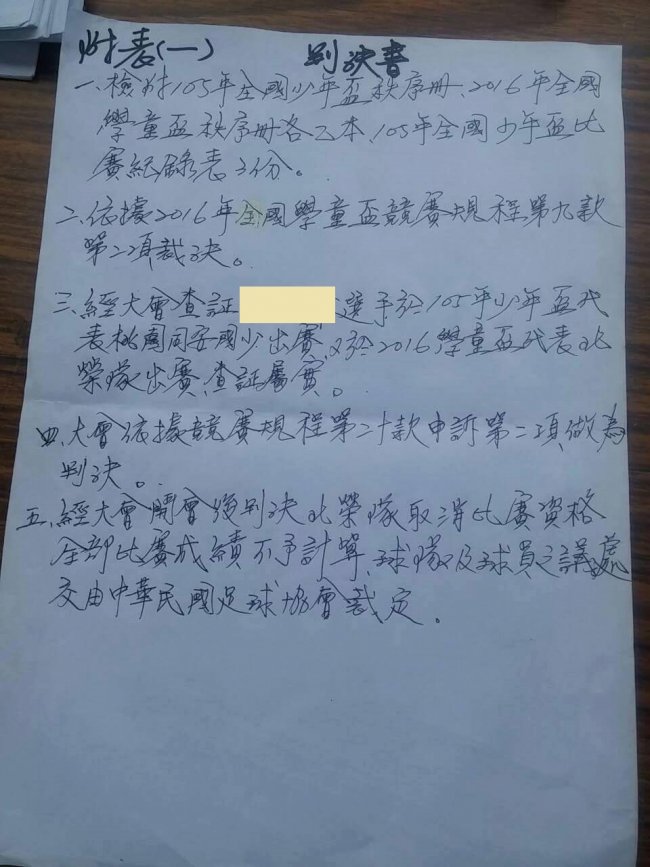 附表(一) 判決書
一、檢附105年全國少年盃秩序冊、2016年全國
學童盃秩序冊各乙本、105年全國少年盃比
賽紀錄表3份。
二、依據2016年全國學童盃競賽規程第九款
第二項裁決。
三、經大會查証 選手於105年少年盃代
表桃園同安國少出賽,又於2016學童盃代表北
榮隊出賽,查証屬實。
四、大會依據競賽規程第二十款申訴第二項做為
判決。
五、經大會開會後判決北榮隊取消比賽資格
全部比賽成績不予計算,球隊及球員之議處
交由中華民國足球協會裁定。